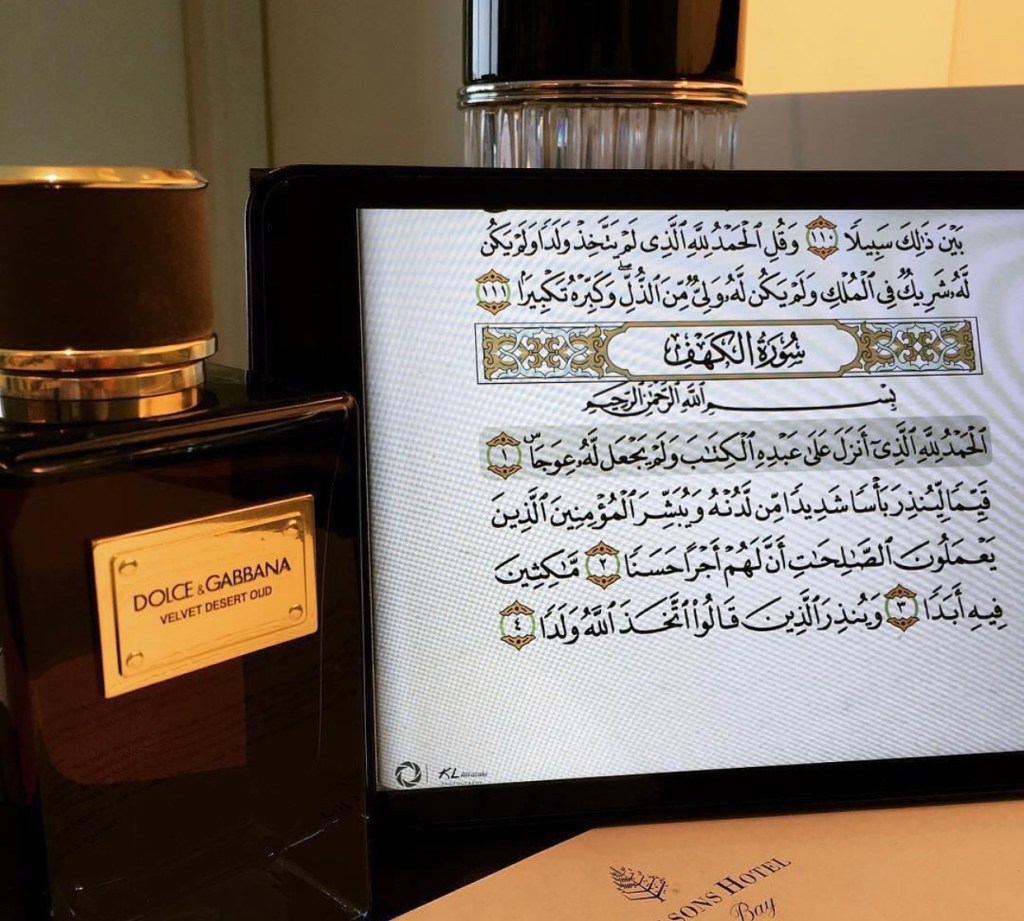 DOLCE & GABBANA
VELVET DESERT OUD
بَيْنَ ذَٰلِكَ سَبِيلًا ١١٠ وَقُلِ ٱلْحَمْدُ لِلَّهِ ٱلَّذِى لَمْ يَتَّخِذْ وَلَدًا وَلَمْ يَكُن
لَّهُۥ شَرِيكٌ فِى ٱلْمُلْكِ وَلَمْ يَكُن لَّهُۥ وَلِىٌّ مِّنَ ٱلذُّلِّ ۖ وَكَبِّرْهُ تَكْبِيرًۢا ١١١
سُورَةُ الكَهْفِ
بِسْمِ ٱللَّهِ ٱلرَّحْمَٰنِ ٱلرَّحِيمِ
ٱلْحَمْدُ لِلَّهِ ٱلَّذِىٓ أَنزَلَ عَلَىٰ عَبْدِهِ ٱلْكِتَٰبَ وَلَمْ يَجْعَل لَّهُۥ عِوَجَاۜ ١
قَيِّمًا لِّيُنذِرَ بَأْسًا شَدِيدًا مِّن لَّدُنْهُ وَيُبَشِّرَ ٱلْمُؤْمِنِينَ ٱلَّذِينَ
يَعْمَلُونَ ٱلصَّٰلِحَٰتِ أَنَّ لَهُمْ أَجْرًا حَسَنًا ٢ مَّٰكِثِينَ
فِيهِ أَبَدًا ٣ وَيُنذِرَ ٱلَّذِينَ قَالُوا۟ ٱتَّخَذَ ٱللَّهُ وَلَدًا ٤
KL
SONS HOTEL
Bay